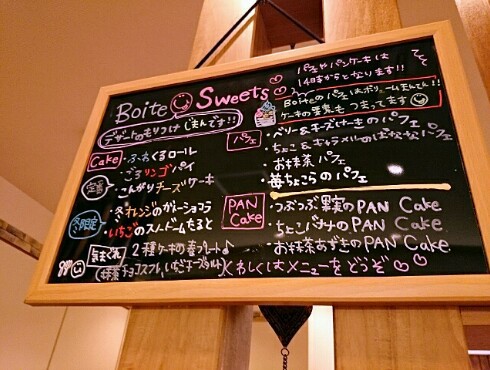 Boite Sweets
デザートのもりつけ じまんです!!
パフェやパンケーキは
14時からとなります!!
Boiteのパフェはボリュームまんてん!!
ケーキの要素もつまってます
Cake
・ふわくるロール
・ごろリンゴパイ
定番
・こんがりチーズケーキ
冬限定
・冬オレンジのガトーショコラ
・いちごのスノードームたると
気まぐれ
2種ケーキの春プレート♪
(抹茶チョコスフレ、いちごチーズタルト)
パフェ
・ベリー&チーズけーきのパフェ
・ちょこ&キャラメルのばななパフェ
・お抹茶パフェ
・苺ちょこらのパフェ
PAN Cake
・つぶつぶ果実のPAN Cake
・ちょこバナナのPAN Cake
・お抹茶あずきのPAN Cake
くわしくはメニューをどうぞ